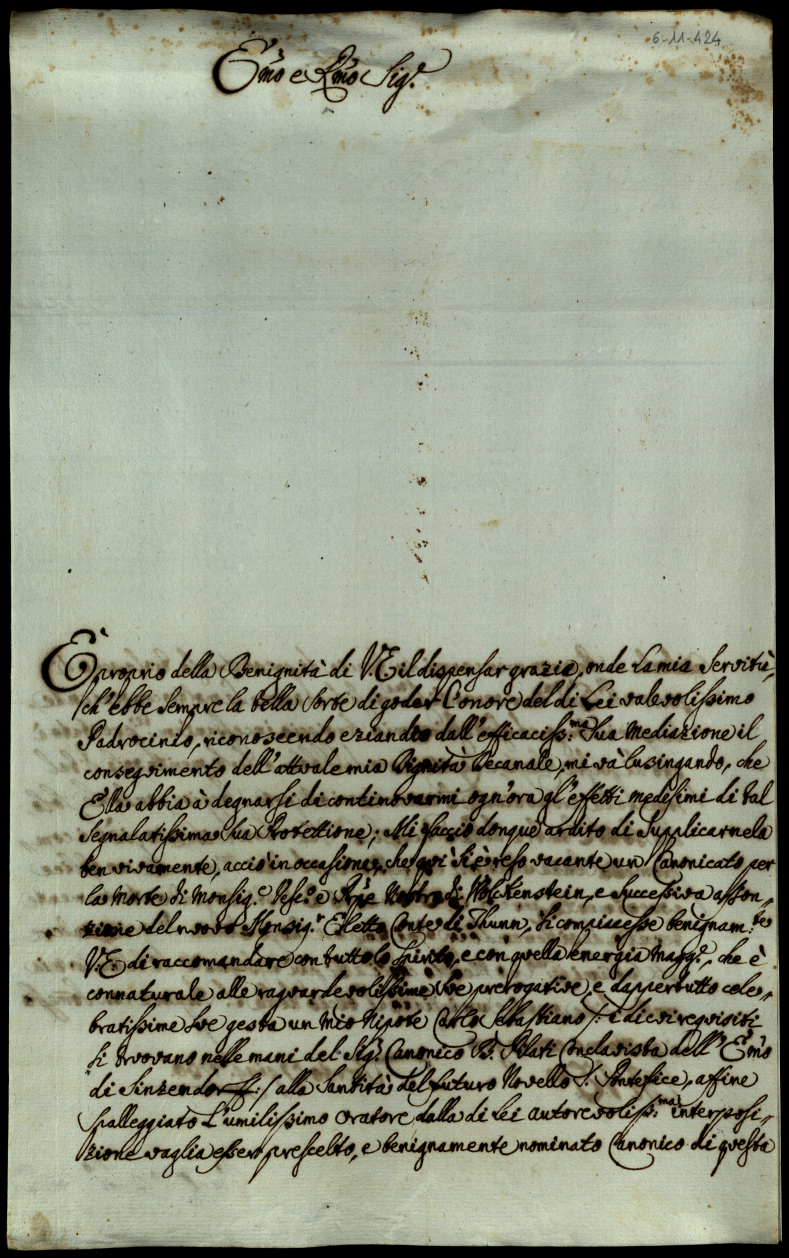 6-11-424
Em̃o e Rm̃o Sig.r
È proprio della Benignità di V.E. il dispensar grazie, onde la mia Servitù,
ch'ebbe sempre la bella sorte di goder l'onore del di Lei valevolissimo
Padrocinio, riconoscendo eziandio dall'efficaciss:ma Sua Mediazione il
conseguimento dell'attuale mia Dignità Decanale, mi và lusingando, che
Ella abbia à degnarsi di continovarmi ogn'ora gl'effetti medesimi di tal
segnalatissima Sua Protettione; Mi faccio donque ardito di Supplicarnela
ben vivamente, acciò in occasione, che quì si è reso vacante un Canonicato per
la morte di Monsig.e Vesc.o e Prpe Nostro di Wolckenstein, e successiva asson„
zione del nuovo Monsig.r Eletto Conte di Thunn, si compiacesse benignam:te
V.E. di raccomandare con tutto lo spirito, e con quella energia magg.e, che è
connaturale alle raguardevolissime Sue prerogative, e dappertutto cele„
bratissime Sue gesta un mio Nipote Carlo Sebastiano /: i di cui requisiti
si trovano nelle mani del Sig.r Canonico B. Pilati Conclavista dell' Em̃o
di Sinzendorff :/ alla Santità del futuro Novello S. Pontefice, affine
spalleggiato l'umilissimo oratore dalla di Lei autorevoliss:ma interposi„
zione vaglia esser prescelto, e benignamente nominato Canonico di questa